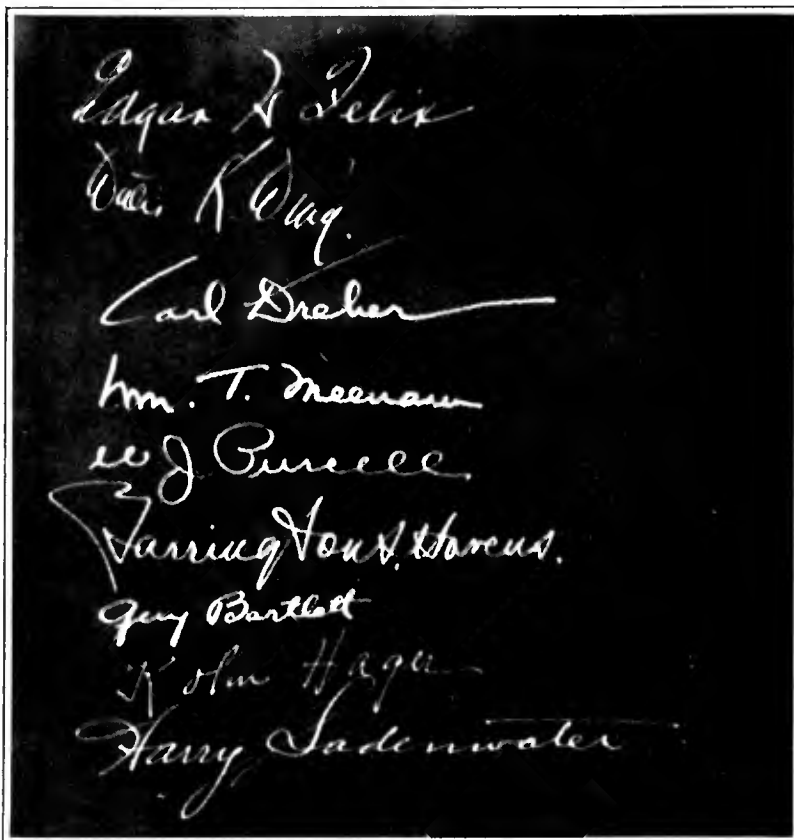 Edgar H Felix
Willis K Wing.
Carl Dreher
Wm. T. Meenam
W J Purcell
Barrington S. Havens.
Guy Bartlett
Kolin Hager
Harry Sadenwater